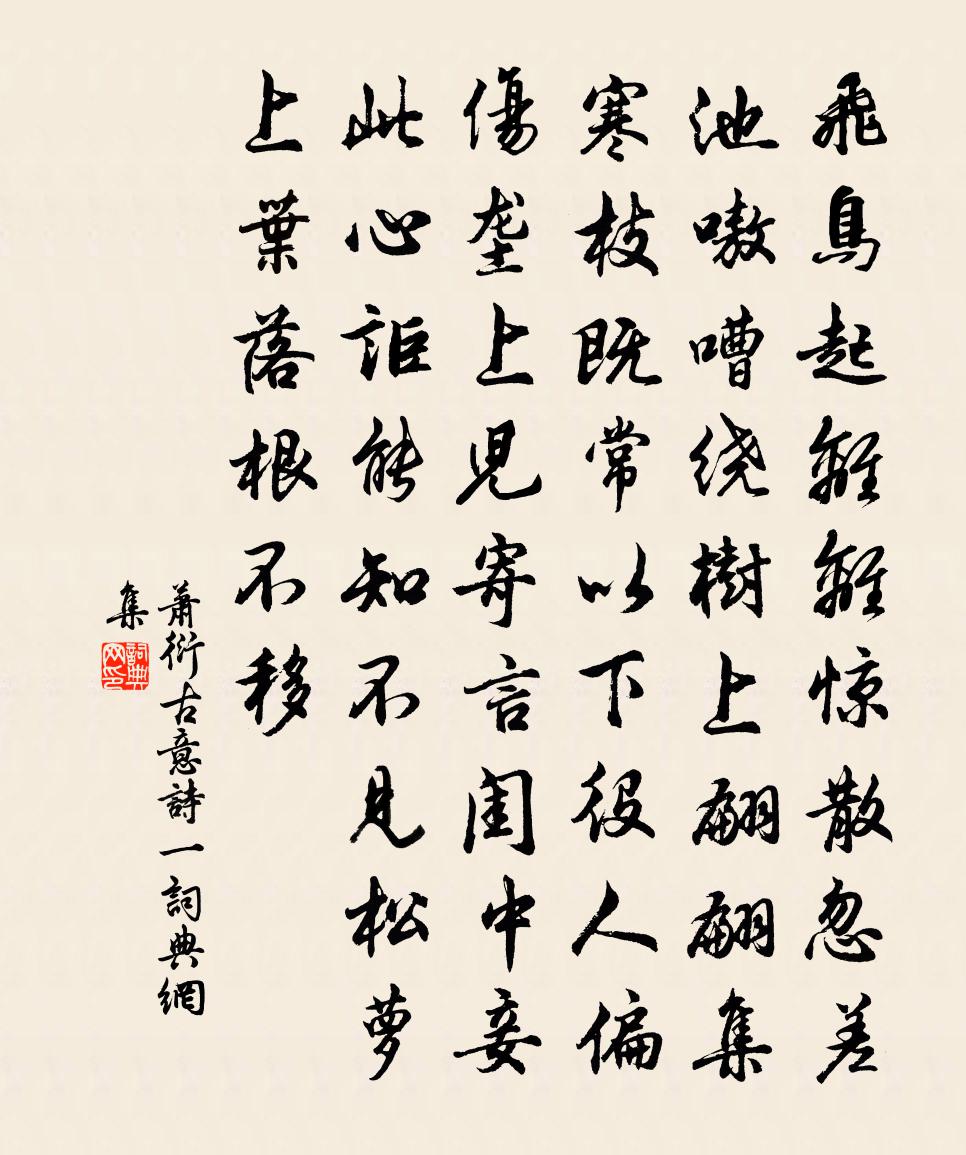 飛鳥起離離惊散忽差
池嗷嘈绕樹上翩翩集
寒枝既常以下役人偏
傷垄上児寄言闺中妾
此心詎能知不見松萝
上葉落根不移
蕭衍古意詩一詞典網
集
詞典网印